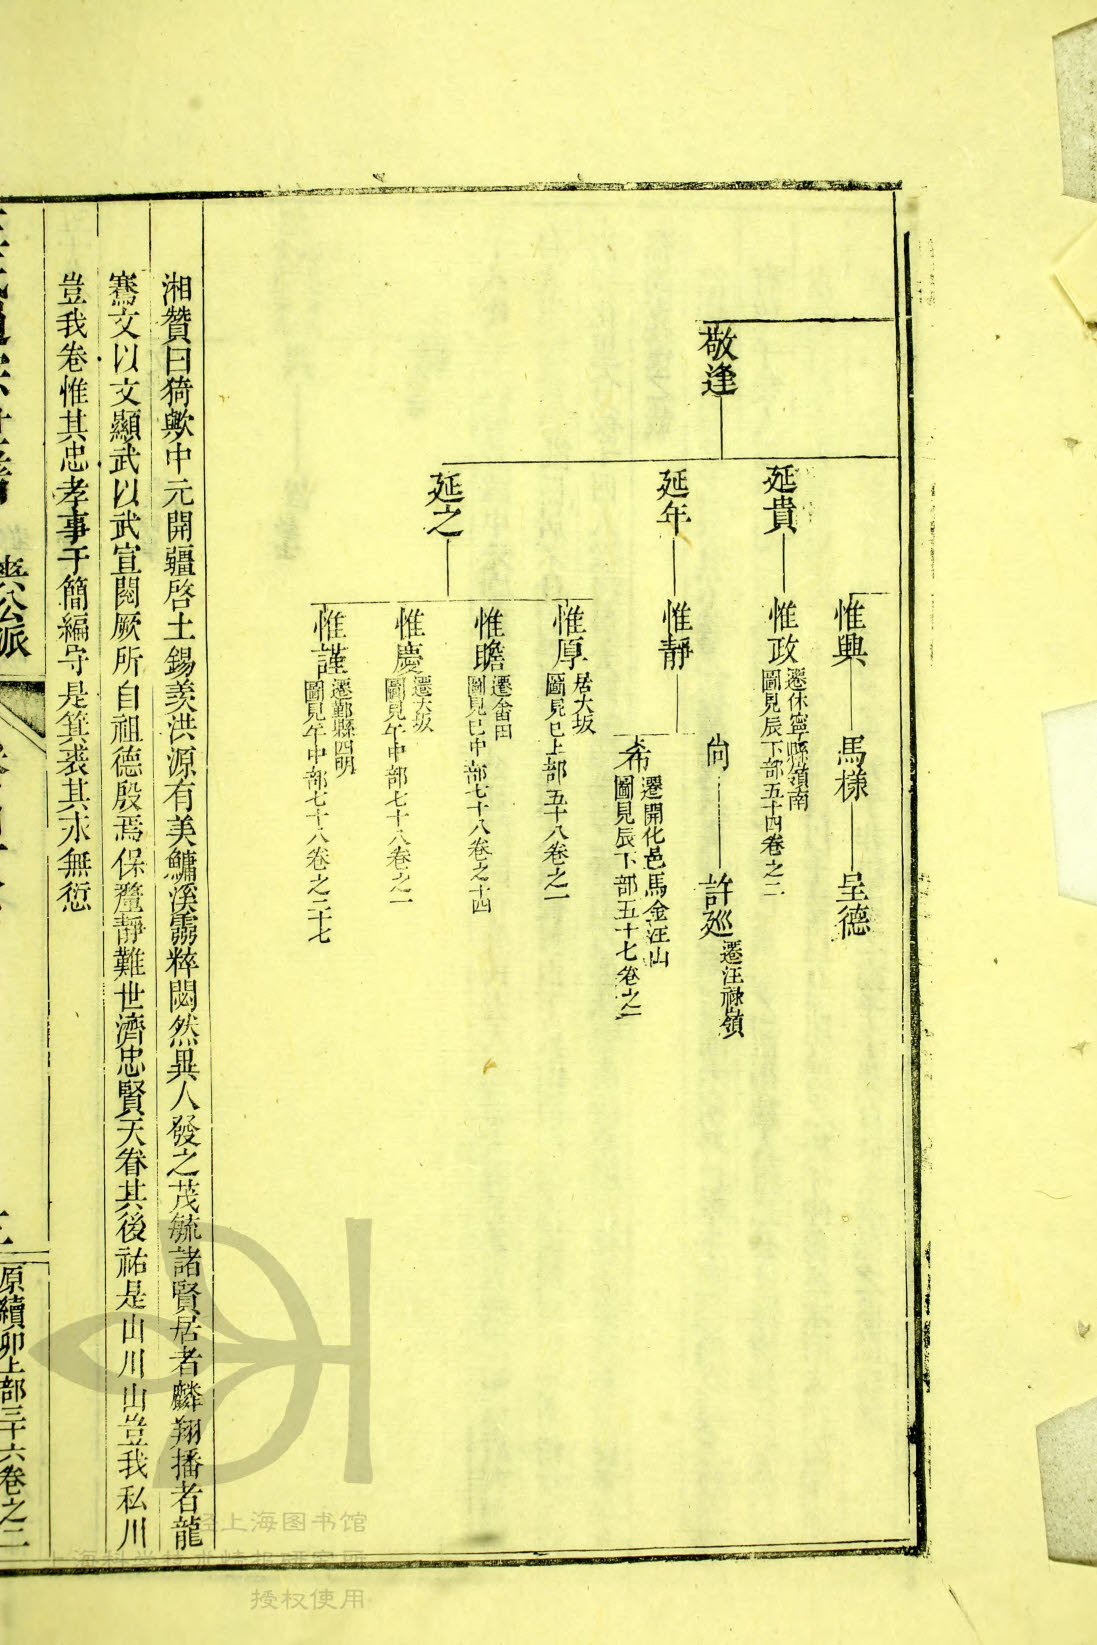 敬逢
惟興
馬樣
呈德
延貴
惟政
遷休寧縣嶺南
圖見辰下部五十四卷之二
延年
惟靜
尙
許廵
遷汪祿嶺
希
遷開化邑馬金汪山
圖見辰下部五十七卷之一
延之
惟厚
居大坂
圖見巳上部五十八卷之一
惟瞻
遷畬田
圖見巳中部七十八卷之十四
惟慶
遷大坂
圖見午中部七十八卷之一
惟謹
遷鄞縣四明
圖見午中部七十八卷之二十七
湘贊曰猗歟中元開疆啓土錫羨洪源有美鱅溪霛粹閟然異人發之茂毓諸賢居者麟翔播者龍
騫文以文顯武以武宣閱厥所自祖德殷焉保釐靜難世濟忠賢天眷其後祐是山川山豈我私川
豈我卷惟其忠孝事于簡編守是箕裘其永無愆
公派
原續卯上部三十六卷之二
上海图书馆
授权使用